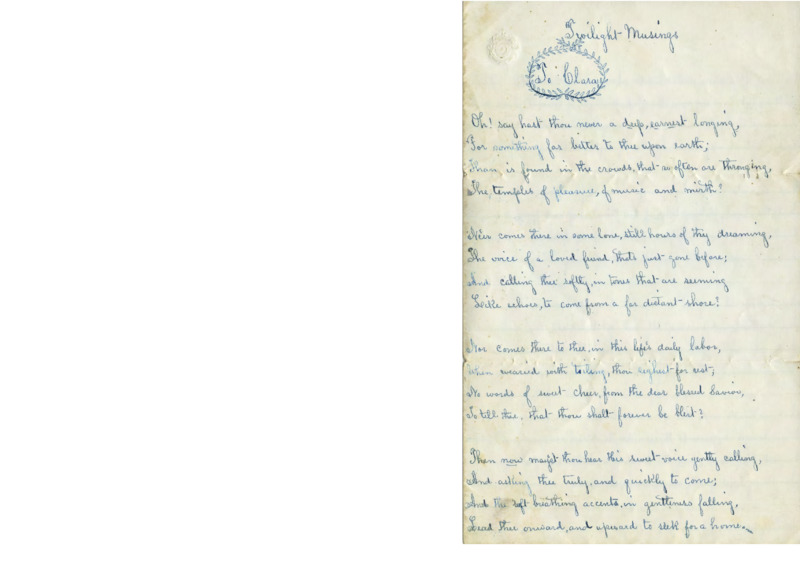 Twilight Musings
To Clara
Oh! say hast thou never a deep, earnest longing,
For something far better to thee upon earth;
Than is found in the crowds, that so often are thronging,
The temples of pleasure, of music and mirth?
Ne'er comes there in some lone, still hours of thy dreaming,
The voice of a loved friend, that's just gone before;
And calling thee softly, in tones that are seeming
Like echoes, to come from a far distant shore?
Nor comes there to thee, in this life's daily labor,
When wearied with toiling, thou sighest for rest;
No words of sweet cheer, from the dear blessed Savior,
To tell thee, that thou shalt forever be blest?
Then now mayst thou hear this sweet voice gently calling,
And asking thee truly, and quickly to come;
And the soft breathing accents, in gentleness falling,
Lead thee onward, and upward to seek for a home.